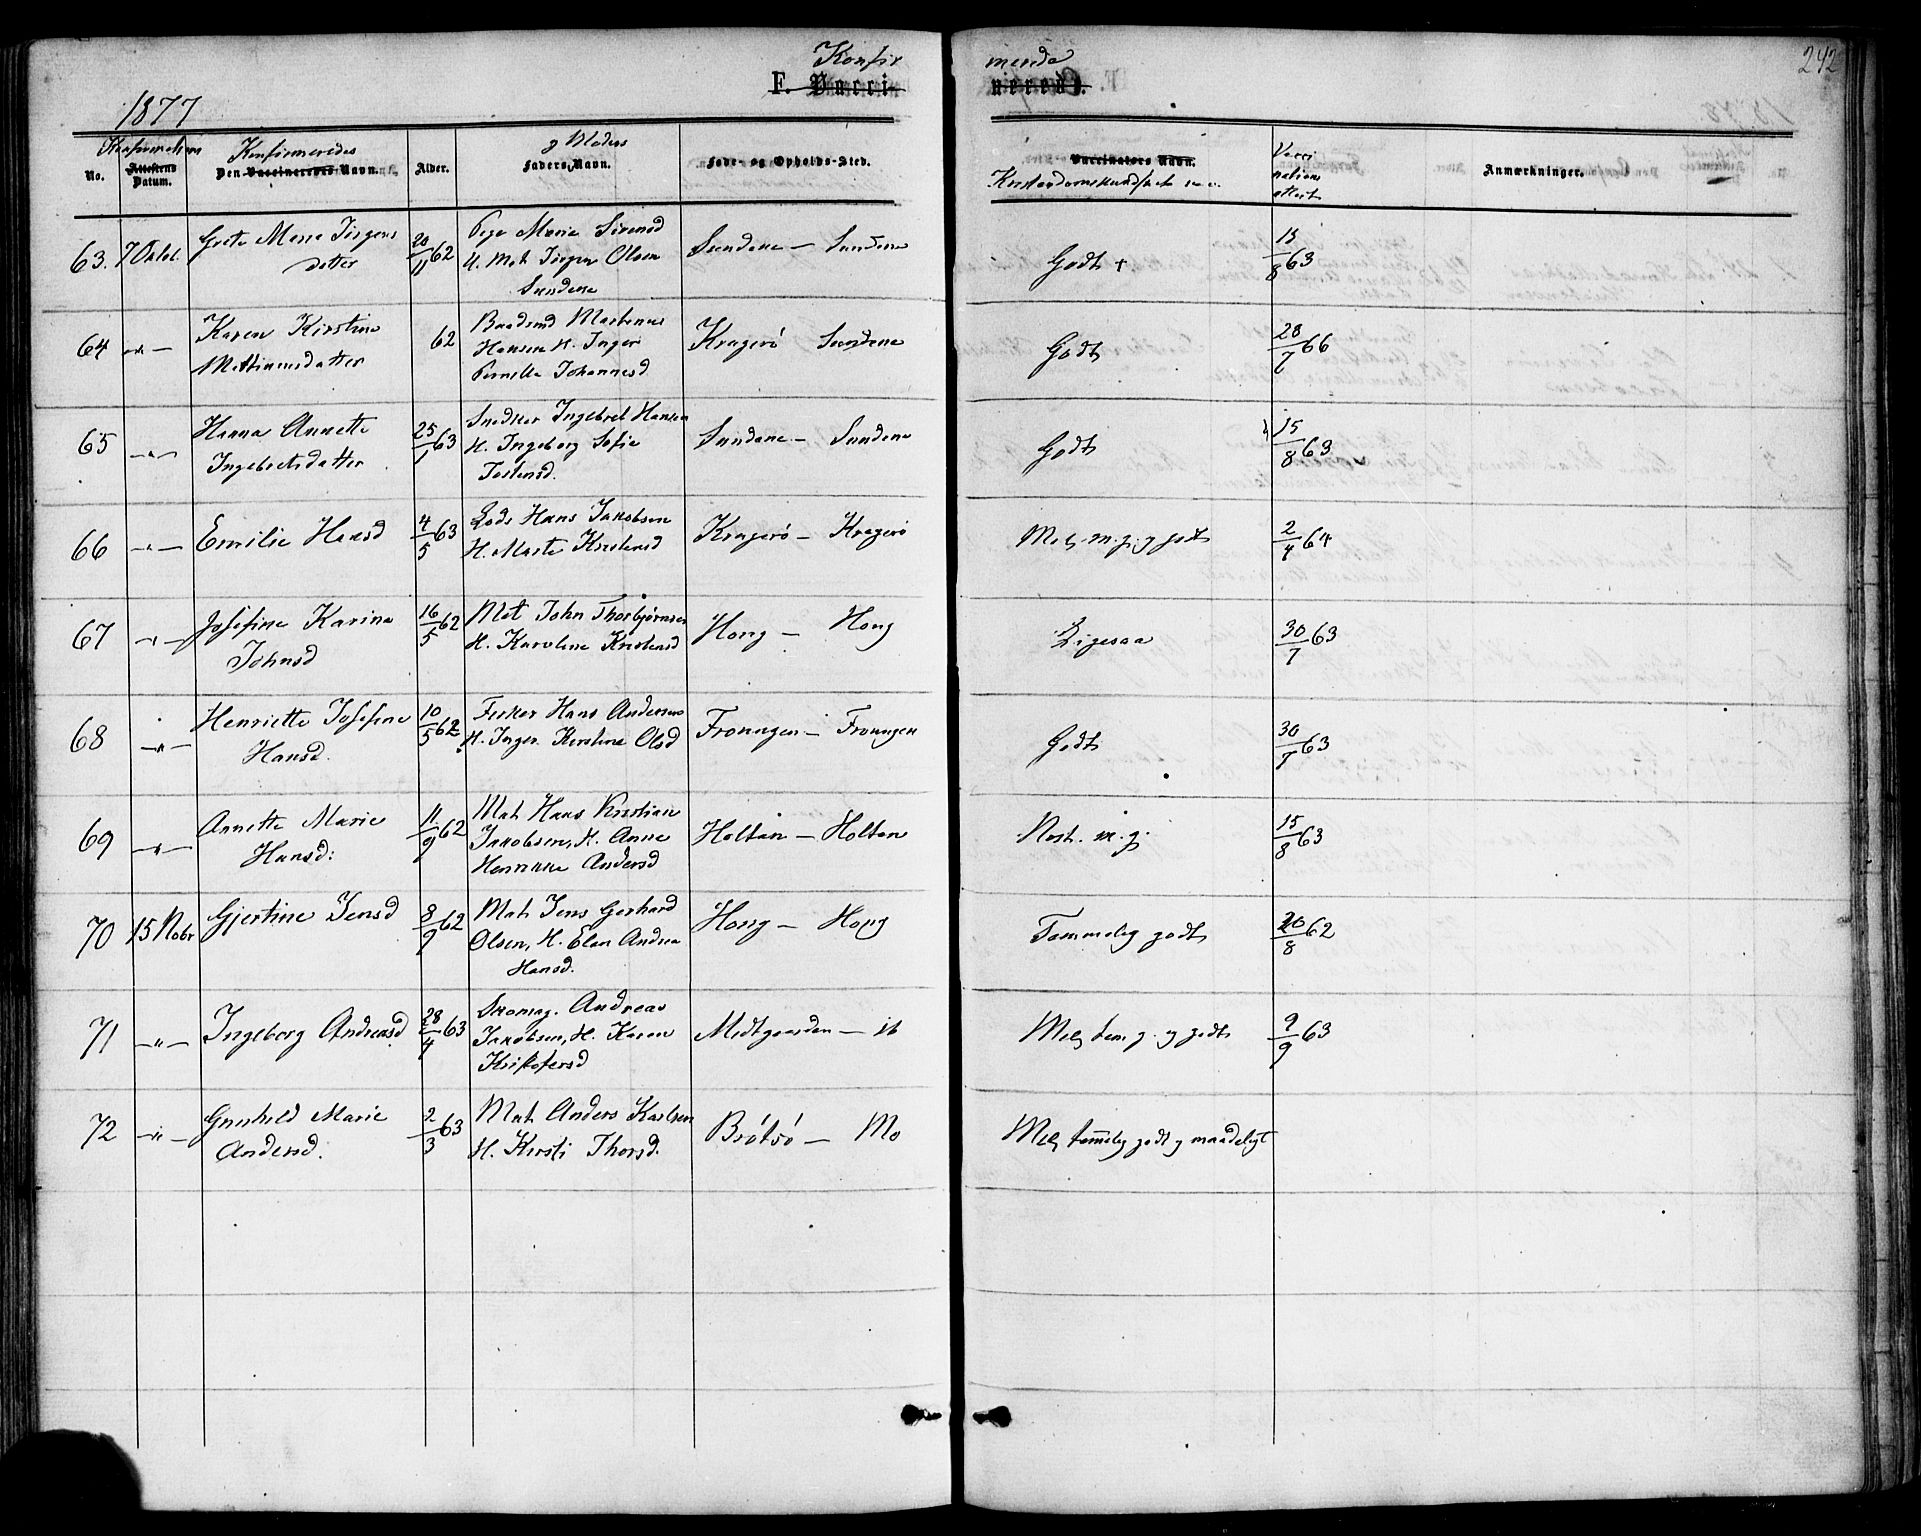 242
Konfir merede
F. Vacci- nerede.
1877
Konfirmations Konfirmeredes g Moders Vacci
No. Attestens Datum. Den Vaccineredes Navn. Alder. Faders Navn. Føde- og Opholds-Sted. Vaccinators Navn. nations Anmærkninger.
Kristendomskundskab m.v. attest
63. 7 Oktob. Grete Marie Jørgens 20/11 62 Pige Marie Simensd Sundene – Sundene Godt + 15/8 63
datter U. Mat Jørgen Olsen
Sundene
64 -"- Karen Kirstine 62 Baadsmd Martinius Kragerø Sundene Godt 28/7 66
Mathinusdatter Hansen H. Inger
Pernille Johannesd
65 -"- Hanna Annette 25/1 63 Snedker Ingebret Hansen Sundene – Sundene Godt 15/8 63
Ingebretsdatter H. Ingeborg Sofie
Tostensd.
66 -"- Emilie Hansd 4/5 63 Lods Hans Jakobsen Kragerø – Kragerø Mel. m.g. g godt 2/4 64
H. Marte Kristensd
67 -"- Josefine Karine 16/5 62 Mat John Thorbjørnsen Houg – Houg Ligesaa 30/7 63
Johnsd H. Karoline Kristensd
68 -"- Henriette Josefine 10/5 62 Fisker Hans Andersen Fronngen – Fronngen Godt 30/7 63
Hansd. H. Inger Kirstine Olsd
69 -"- Annette Marie 11/9 62 Mat Hans Kristian Holtan – Holtan Næst. m.g. 15/8 63
Hansd: Jakobsen, H. Anne
Henrikke Andersd
70 15 Nobr Gjertine Jensd 8/9 62 Mat Jens Gerhard Houg – Houg Temmelig godt 20/8 62
Olsen, H. Elen Andrea
Hansd.
71 -"- Ingeborg Andreasd 28/4 63 Skomag. Andreas Midtgaarden – ib Mel. tem g. g godt 9/9 63
Jakobsen, H. Karen
Kristofersd
72 -"- Gunhild Marie 2/3 63 Mat Anders Karlsen Brøtsø – Mo Mel. temmelig godt g maadeligt
Andersd. H. Kirsti Thorsd.